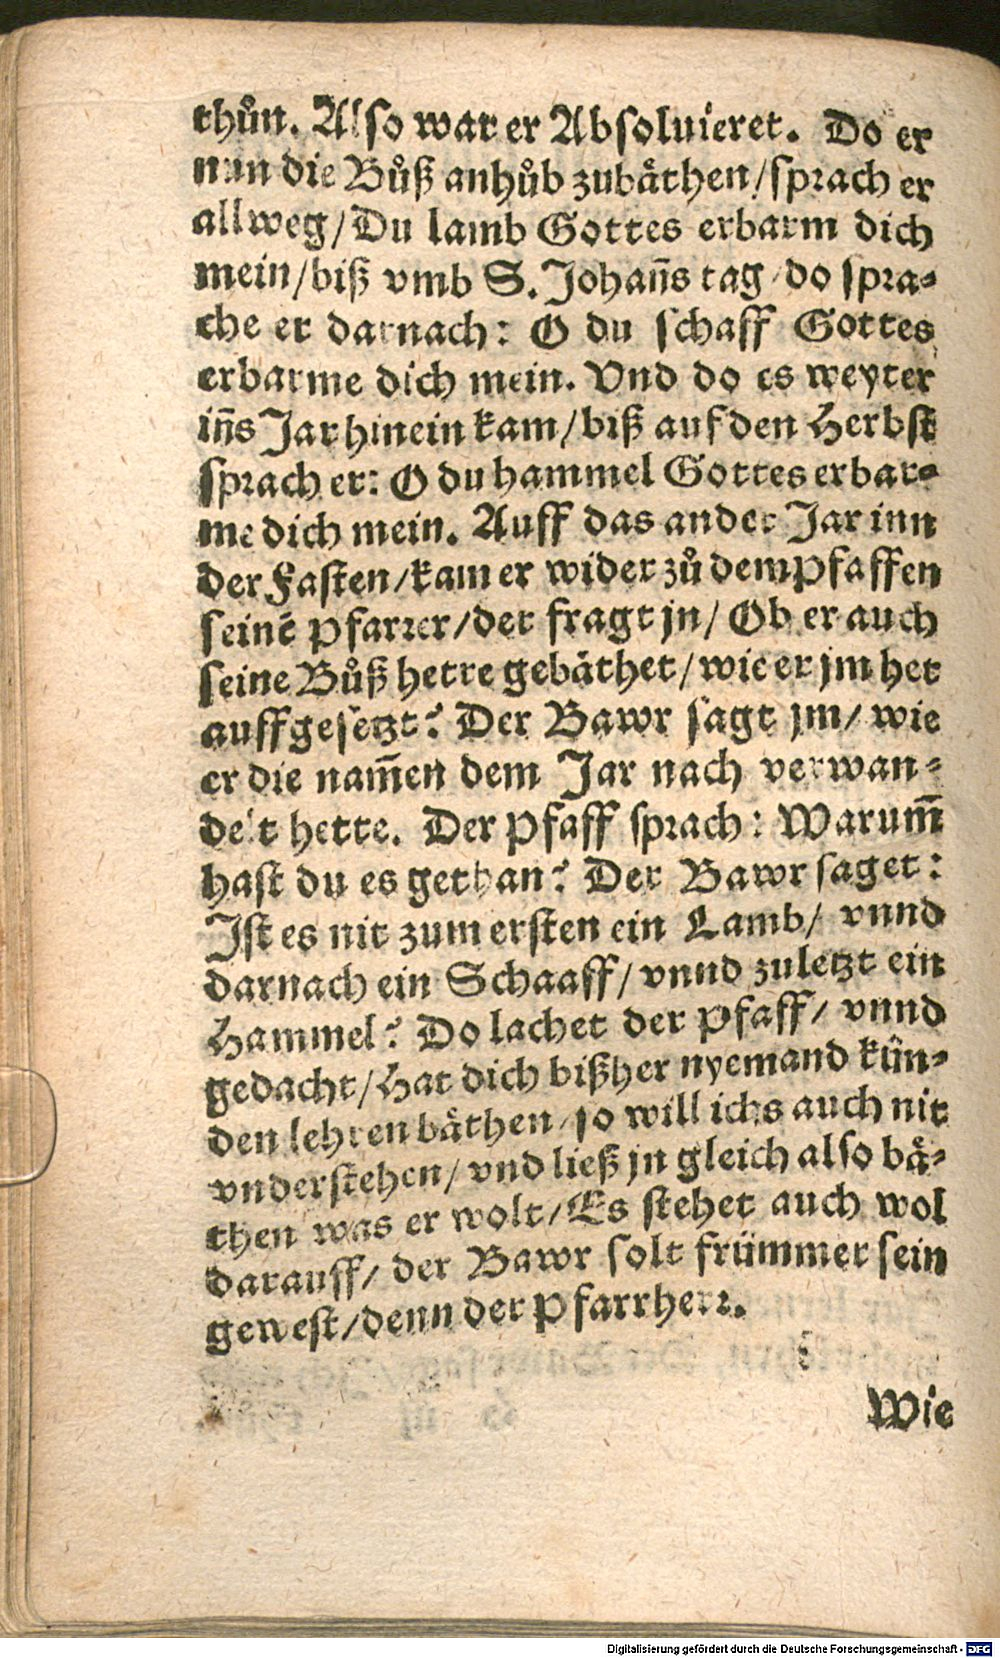 thůn. Also war er Absoluieret. Do er
nun die Bůß anhůb zubäthen/sprach er
allweg/Du lamb Gottes erbarm dich
mein/biß vmb S. Johañs tag/do spra-
che er darnach: O du schaff Gottes
erbarme dich mein. Vnd do es weyter
iñs Jar hinein kam/biß auf den Herbst
sprach er: O du hammel Gottes erbar-
me dich mein. Auff das ander Jar inn
der Fasten/kam er wider zů dem Pfaffen
seinē Pfarrer/der fragt jn/Ob er auch
seine Bůß hette gebäthet/wie er jm het
auffgesetzt? Der Bawr sagt jm/wie
er die nam̄en dem Jar nach verwan-
delt hette. Der Pfaff sprach: Warum̄
hast du es gethan? Der Bawr saget:
Ist es nit zum ersten ein Lamb/vnnd
darnach ein Schaaff/vnnd zuletzt ein
Hammel? Do lachet der Pfaff/vnnd
gedacht/Hat dich bißher nyemand kün-
den lehren bäthen/so will ichs auch nit
vnderstehen/vnd ließ jn gleich also bä-
then was er wolt/Es stehet auch wol
darauff/der Bawr solt frümmer sein
gewest/denn der Pfarrherr.
Wie
Digitalisierung gefördert durch die Deutsche Forschungsgemeinschaft - DFG